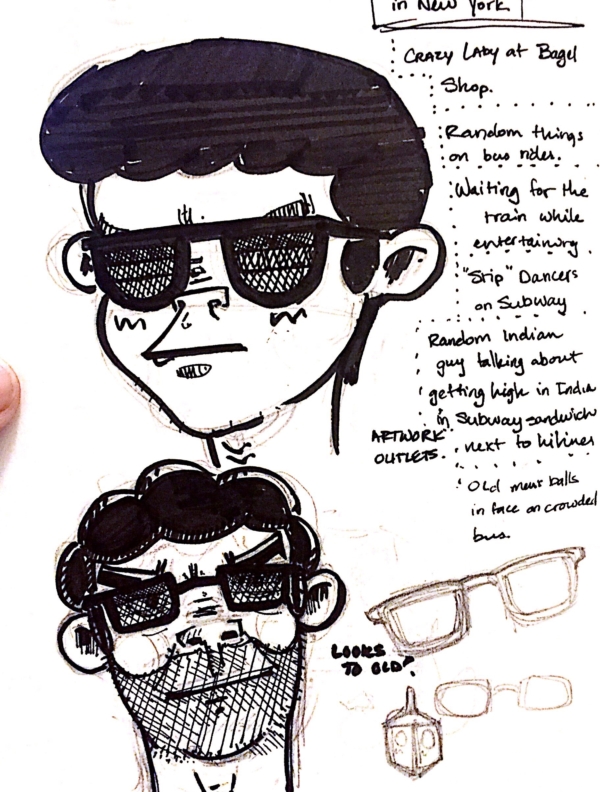 in New York
Crazy Lady at Bagel
Shop.
Random things
on bus rides.
Waiting for the
train while
entertaining
"Stip" Dancers
on Subway
Random Indian
guy talking about
getting high in India
in Subway sandwich
next to
ARTWORK
OUTLETS.
Old mens balls
in face on crowded
bus.
LOOKS
TO OLD?